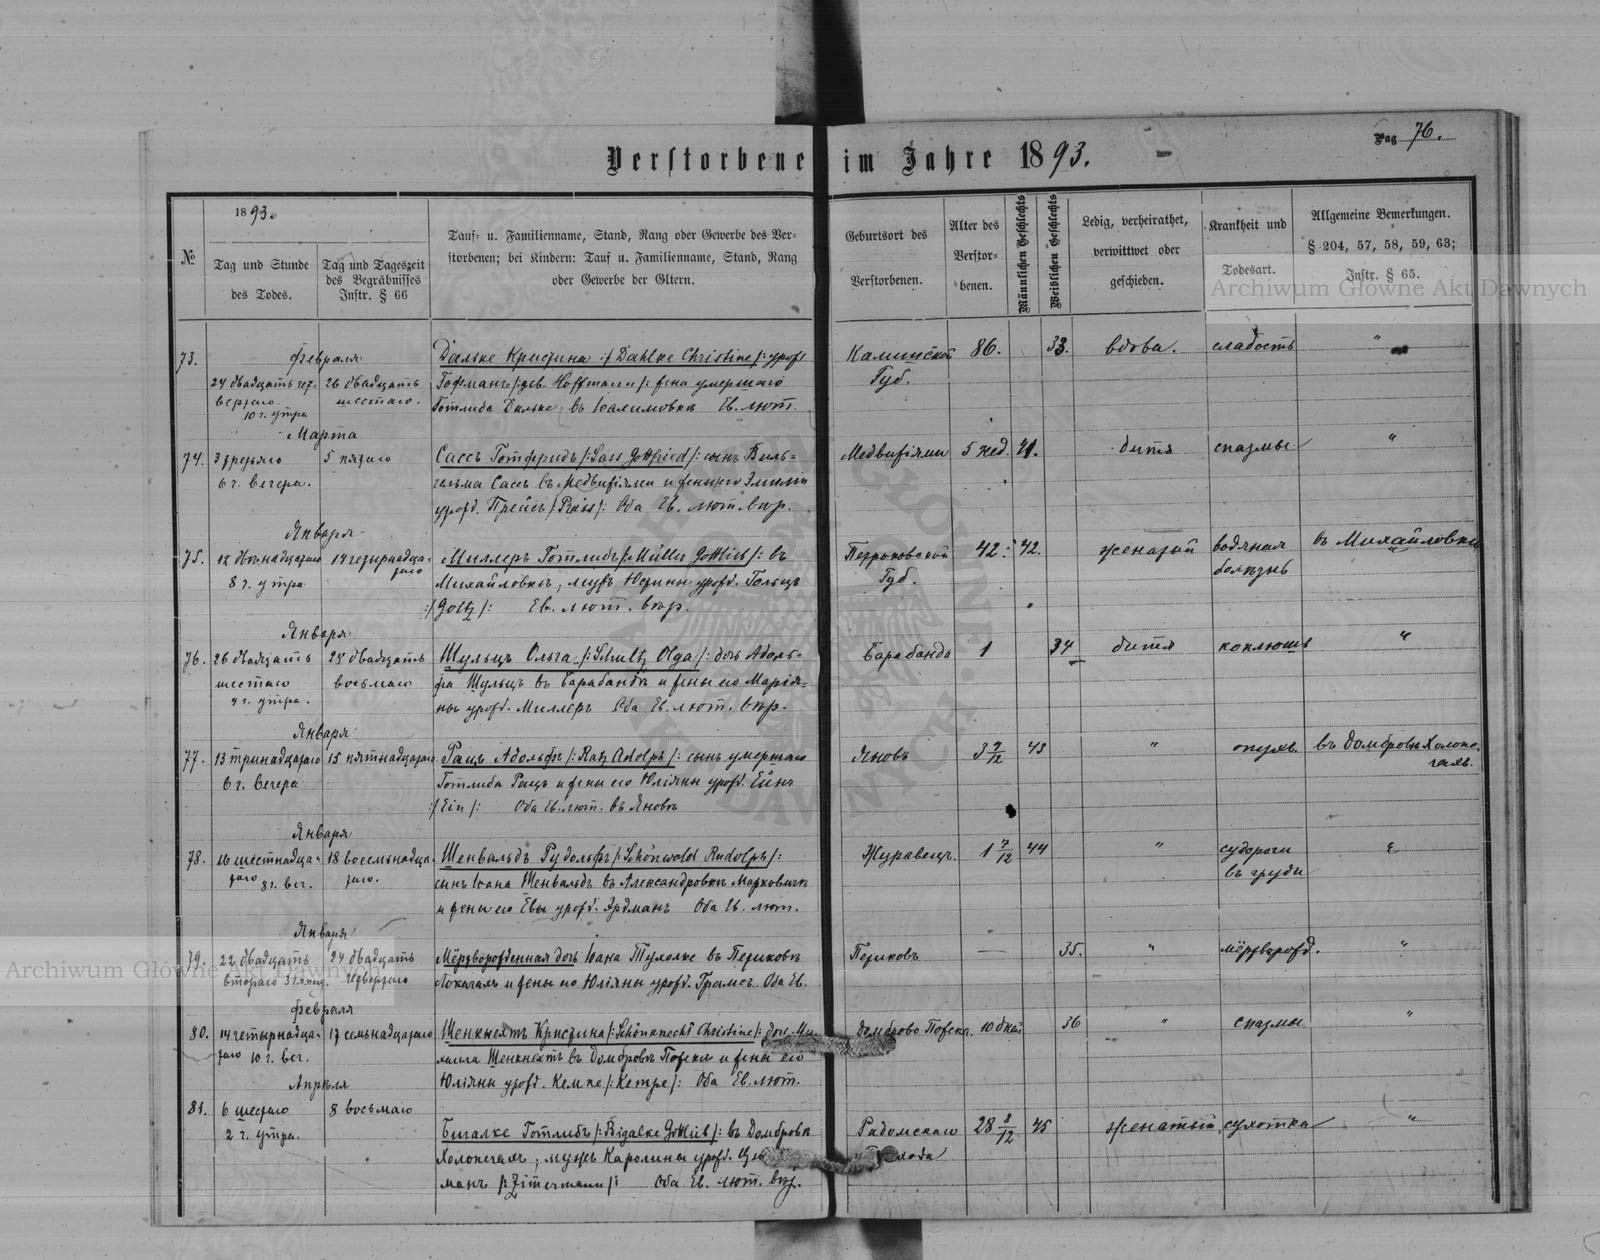 Pag 76.
Verstorbene im Jahre 1893.
№
1893.
Tag und Stunde
des Todes.
Tag und Tageszeit
des Begräbnisses
Instr. § 66
Tauf- u. Familienname, Stand, Rang oder Gewerbe des Ver-
storbenen; bei Kindern: Tauf u. Familienname, Stand, Rang
oder Gewerbe der Eltern.
Geburtsort des
Verstorbenen.
Alter des
Verstor-
benen.
Männlichen Geschlechts
Weiblichen Geschlechts
Ledig, verheirathet,
verwittwet oder
geschieden.
Krankheit und
Todesart.
Allgemeine Bemerkungen.
§ 204, 57, 58, 59, 63;
Instr. § 65.
Archiwum Główne Akt Dawnych
73.
Февраля
24 двадцать чет-
вертаго
10 г. утра
26 двадцать
шестаго.
Дальке Кристина :/ Dahlke Christine/: урожд
Гофманъ /:дев. Hoffmann/: жена умершаго
Готлиба Дальке, въ Калиновка Ев. лют.
Калишской
Губ.
86.
33.
вдова.
слабость
"
Марта
74.
3 третяго
6 г. вечера.
5 пятаго
Сассъ Готфридъ /:Sass Gottfried/: сынъ Виль-
гельма Сассъ въ и жены его Эмиліи
урожд. Прейсъ /:Preiss/: Оба Ев. лют. впр.
5 нед.
41.
дитя
спазмы
"
Января
75.
12 двѣнадцатаго
8 г. утра
14 четырнадца-
таго
Миллеръ Готлибъ /:Müller Gottlieb/: въ
Михайловкѣ, мужъ Юстины урожд. Гольцъ
:/Goltz/: Ев. лют. впр.
Петроковской
Губ.
42.
42.
женатый
водяная
болѣзнь
въ Михайловкѣ
Января
76.
26 двадцать
шестаго
4 г. утра.
28 двадцать
восьмаго
Шульцъ Ольга /:Schultz Olga/: дочь Адоль-
фа Шульцъ въ Барабандѣ и жены его Марія-
ны урожд. Миллеръ Оба Ев. лют. впр.
Барабанда
1
34
дитя
коклюшъ
"
Января
77.
13 тринадцатаго
6 г. вечера
15 пятнадцатаго
Рацъ Адольфъ /:Ratz Adolph/: сынъ умершаго
Готлиба Рацъ и жены его Юліяны урожд. Ейнъ
:/Ein/: Оба Ев. лют. въ Яновѣ
Яновъ
3 7/12
43
"
опухль
въ Домбровѣ Холопе.
чахъ.
Января
78.
16 шестнадца-
таго 8 г. веч.
18 восемьнадца-
таго.
Шенвальдъ Рудольфъ /:Schönwald Rudolph/:
сынъ Іоана Шенвальдъ въ Александровкѣ Марковичѣ
и жены его Евы урожд. Эрдманъ Оба Ев. лют.
Журавецъ.
1 7/12
44
"
судороги
въ груди
Января
79.
22 двадцать
втораго
24 двадцать
четвертаго
Мёртворожденная дочь Іоана Тухолке въ Периковѣ
Локачахъ и жены его Юліяны урожд. Грамсъ. Оба Ев.
Периковъ
—
35.
"
мёртворожд.
"
Archiwum Główne Akt Dawnych
Февраля
80.
14 четырнадца-
таго 10 г. веч.
17 семьнадцатаго
Шенкнехтъ Кристина /:Schönknecht Christine/: дочь Ми-
хаила Шенкнехтъ въ Домбровѣ и жены его
Юліяны урожд. Кемпе /:Kempe/: Оба Ев. лют.
Домброво
10 дней
36
"
спазмы
"
Апрѣля
81.
6 шестаго
2 г. утра.
8 восьмаго
Бигалке Готлибъ /:Bigalke Gottlieb/: въ Домбровѣ
Холопечахъ, мужъ Каролины урожд.
манъ /:Zimermann/: Оба Ев. лют. впр.
Радомскаго
28 8/12
45
женатый
сухотка
"